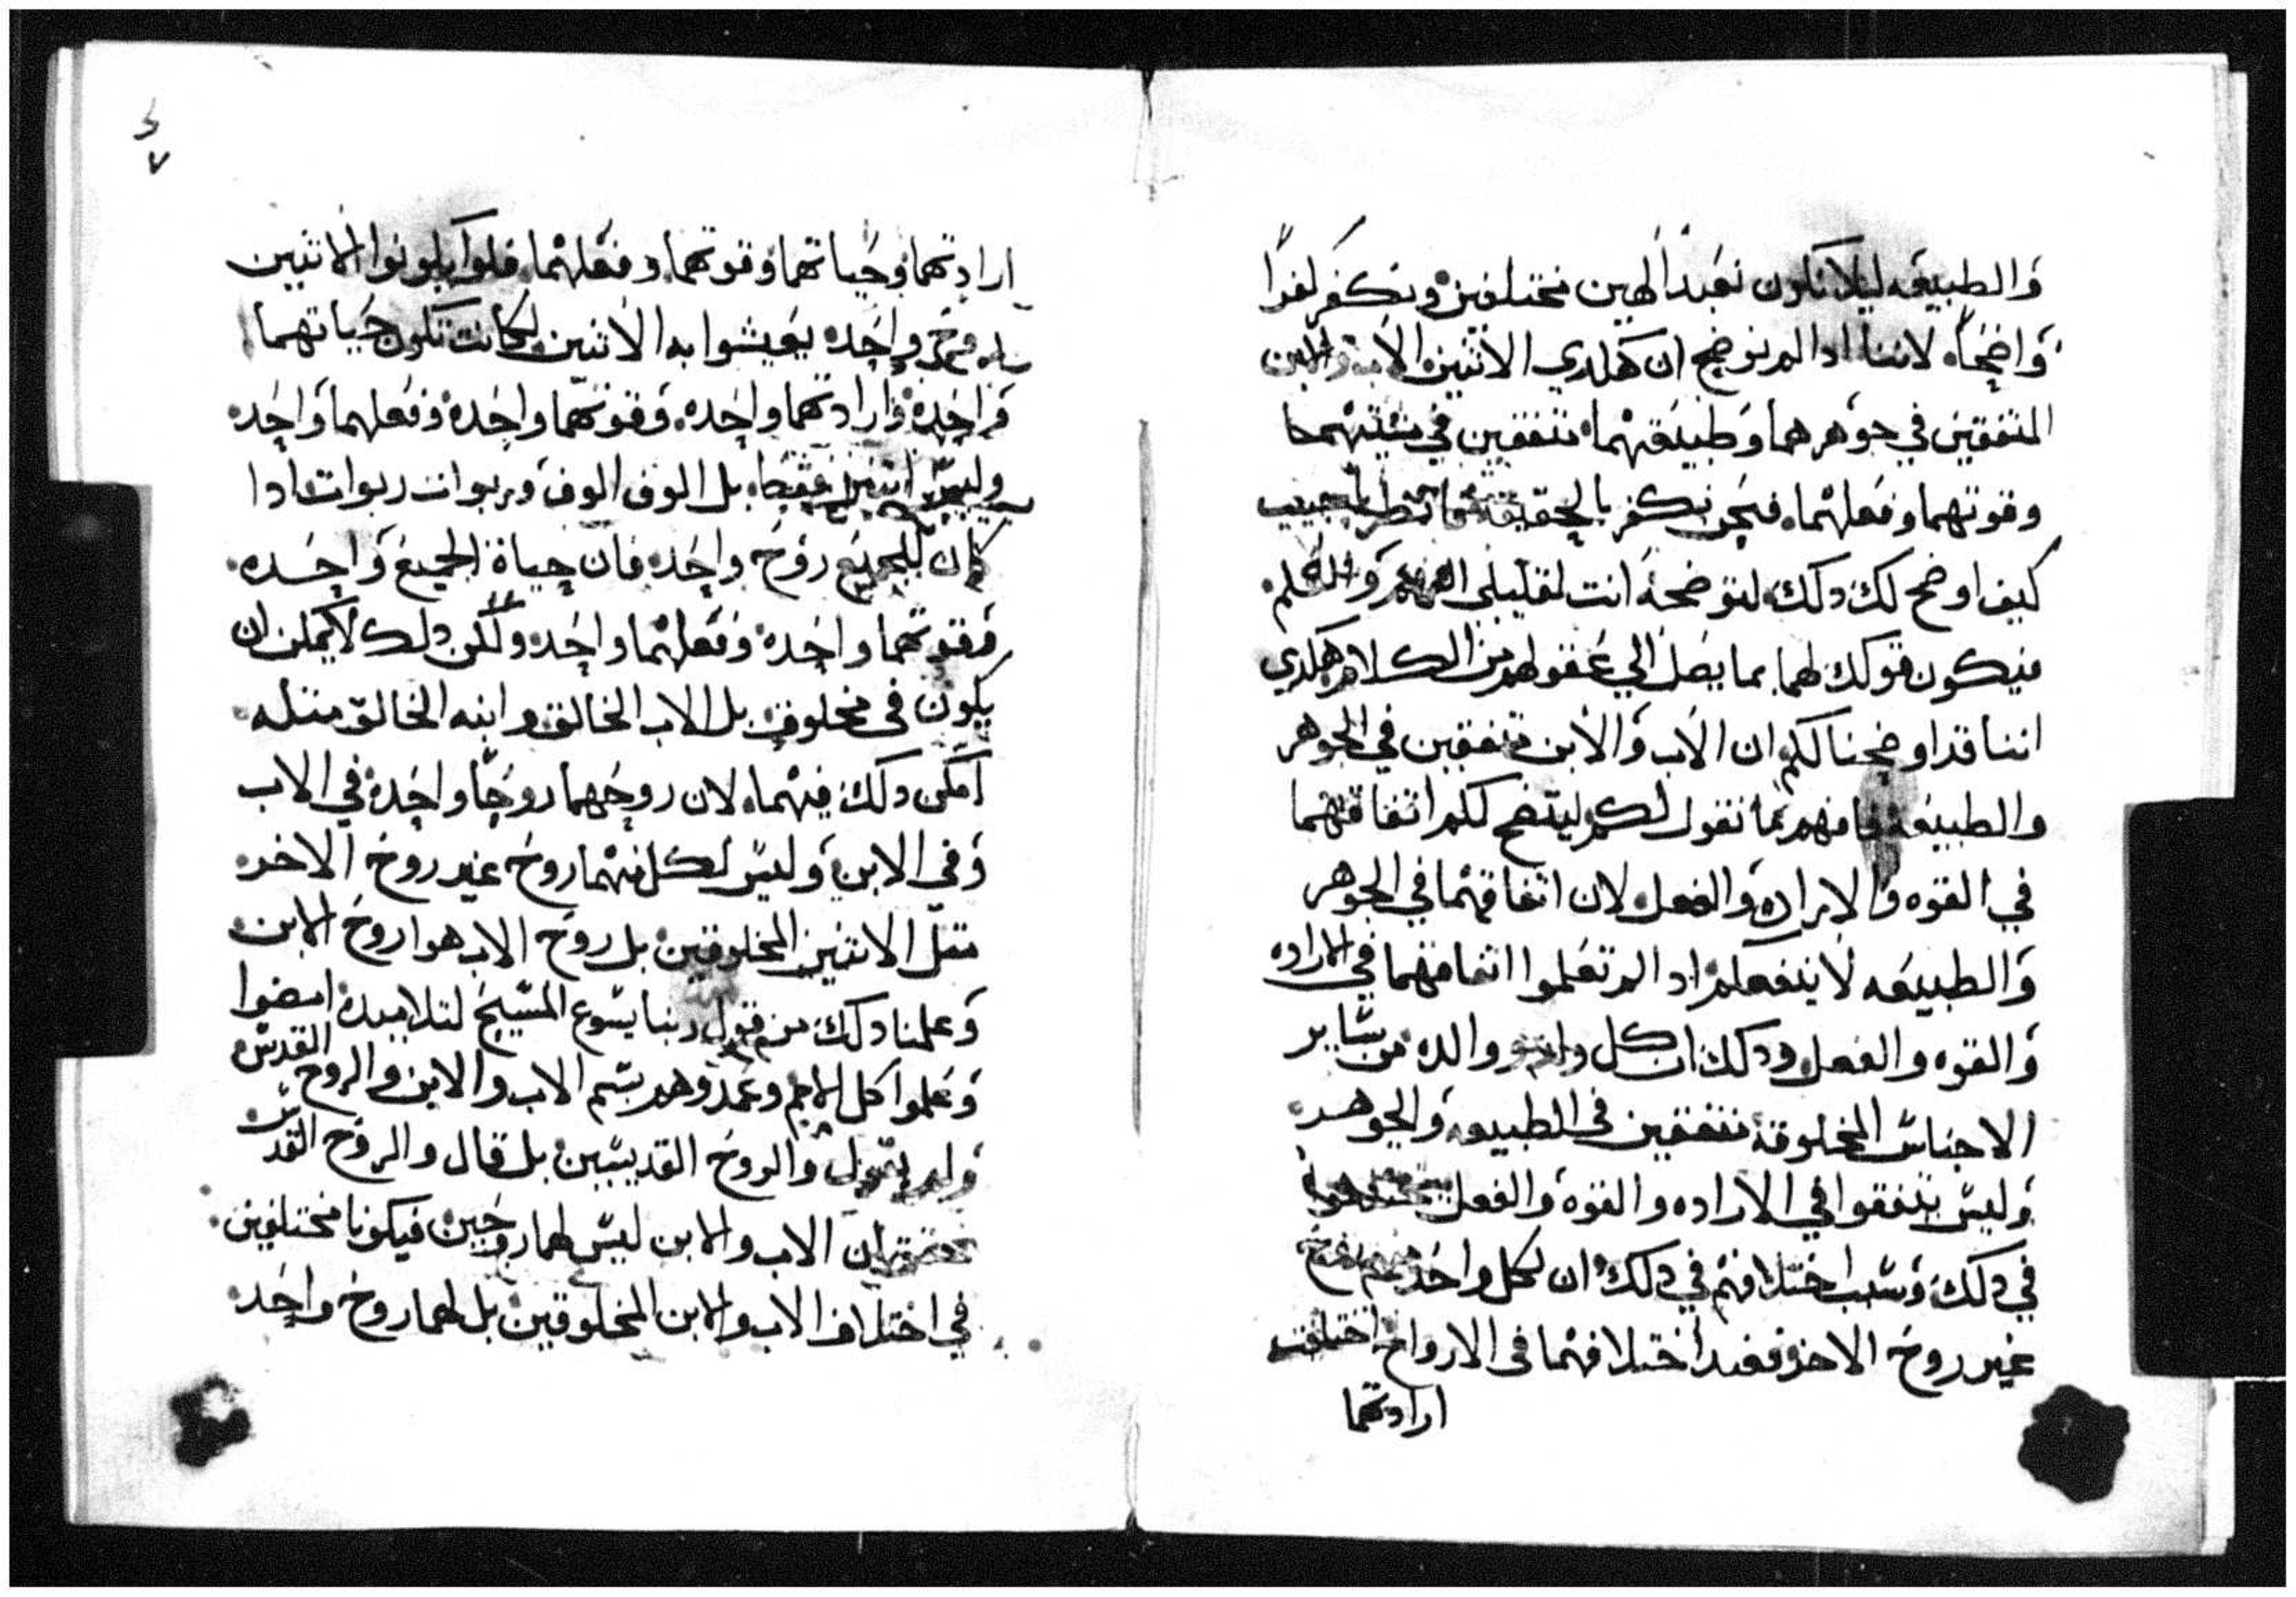 والطبيعه ليلا نكون نعبد الهين مختلفين ونكفر كفرا
واضحا لاننا ادا لم نوضح ان هكدي الاثنين الاب والابن
المتفقين في جوهرهما وطبيعتهما متفقين في مشيتهما
وقوتهما وفعلهما فنحن نكفر بالحقيقه
كيف اوضح لك دلك لتوضحه انت لقليلي الفهم والعلم
فيكون قولك لهما بما يصل الي عقولهم من الكلام هكدي
اننا قد اوضحنا لكم ان الاب والابن متفقين في الجوهر
والطبيعه فافهم بما نقول لكم ليتضح لكم اتفاقهما
في القوه والاراده والفعل لان اتفاقهما في الجوهر
والطبيعه لا ينفعكم ادا لم تعلموا اتفاقهما في الاراده
والقوه والفعل ودلك ان كل ولد ووالده من ساير
الاجناس المخلوقة متفقين في الطبيعه والجوهر
وليس يتفقوا في الاراده والقوه والفعل
في دلك وسبب اختلافهم في دلك ان لكل واحد منهم روح
غير روح الاخر فعند اختلافهما في الارواح اختلفت
ارادتهما
ارادتهما وحياتهما وقوتهما وفعلهما فلوا يكونوا الاثنين
بروح واحده يعيشوا به الاثنين لكانت تكون حياتهما
واحده وارادتهما واحده وقوتهما واحده وفعلهما واحده
وليس اثنين فقط بل الوف الوف وربوات ربوات ادا
كان للجميع روح واحده فان حياة الجميع واحده
وقوتهما واحده وفعلهما واحده ولكن دلك لا يمكن ان
يكون في مخلوق بل الاب الخالق وابنه الخالق مثله
امكن دلك فيهما لان روحهما روحا واحده في الاب
وفي الابن وليس لكل منهما روح غير روح الاخر
مثل الاثنين المخلوقين بل روح الاب هوا روح الابن
وعلمنا دلك من قول ربنا يسوع المسيح لتلاميده امضوا
وعلموا كل الامم وعمدوهم بسم الاب والابن والروح القدس
ولم يقول والروح القديسين بل قال والروح القدس
ان الاب والابن ليس لهما روحين فيكونا مختلفين
في اختلاف الاب والابن المخلوقين بل لهما روح واحده